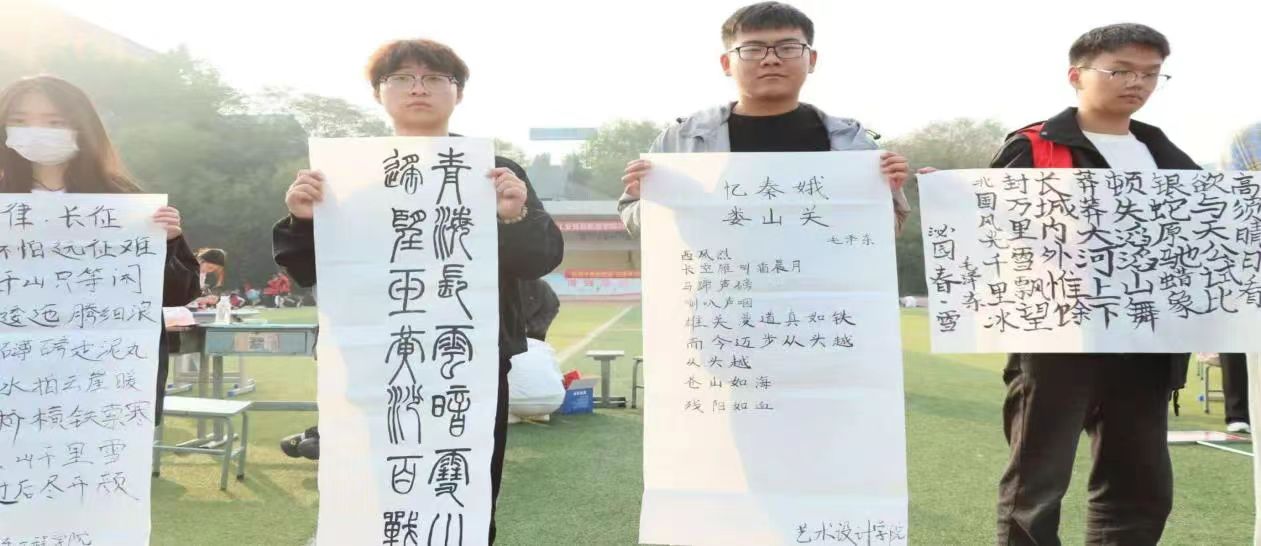 律·长征
不怕远征难
千山只等闲
逶迤腾细浪
磅礴走泥丸
水拍云崖暖
桥横铁索寒
山千里雪
过后尽开颜
工程学院
青海長雲暗雪山
遙望玉黄沙百戰
忆秦娥
娄山关
毛泽东
西风烈
长空雁叫霜晨月
马蹄声碎
喇叭声咽
雄关漫道真如铁
而今迈步从头越
从头越
苍山如海
残阳如血
艺术设计学院
高须晴日看
欲与天公试比
银蛇原驰蜡象
顿失滔滔山舞
莽莽大河上下
长城内外惟馀
封万里雪飘望
北国风光千里冰
毛泽东
沁园春·雪